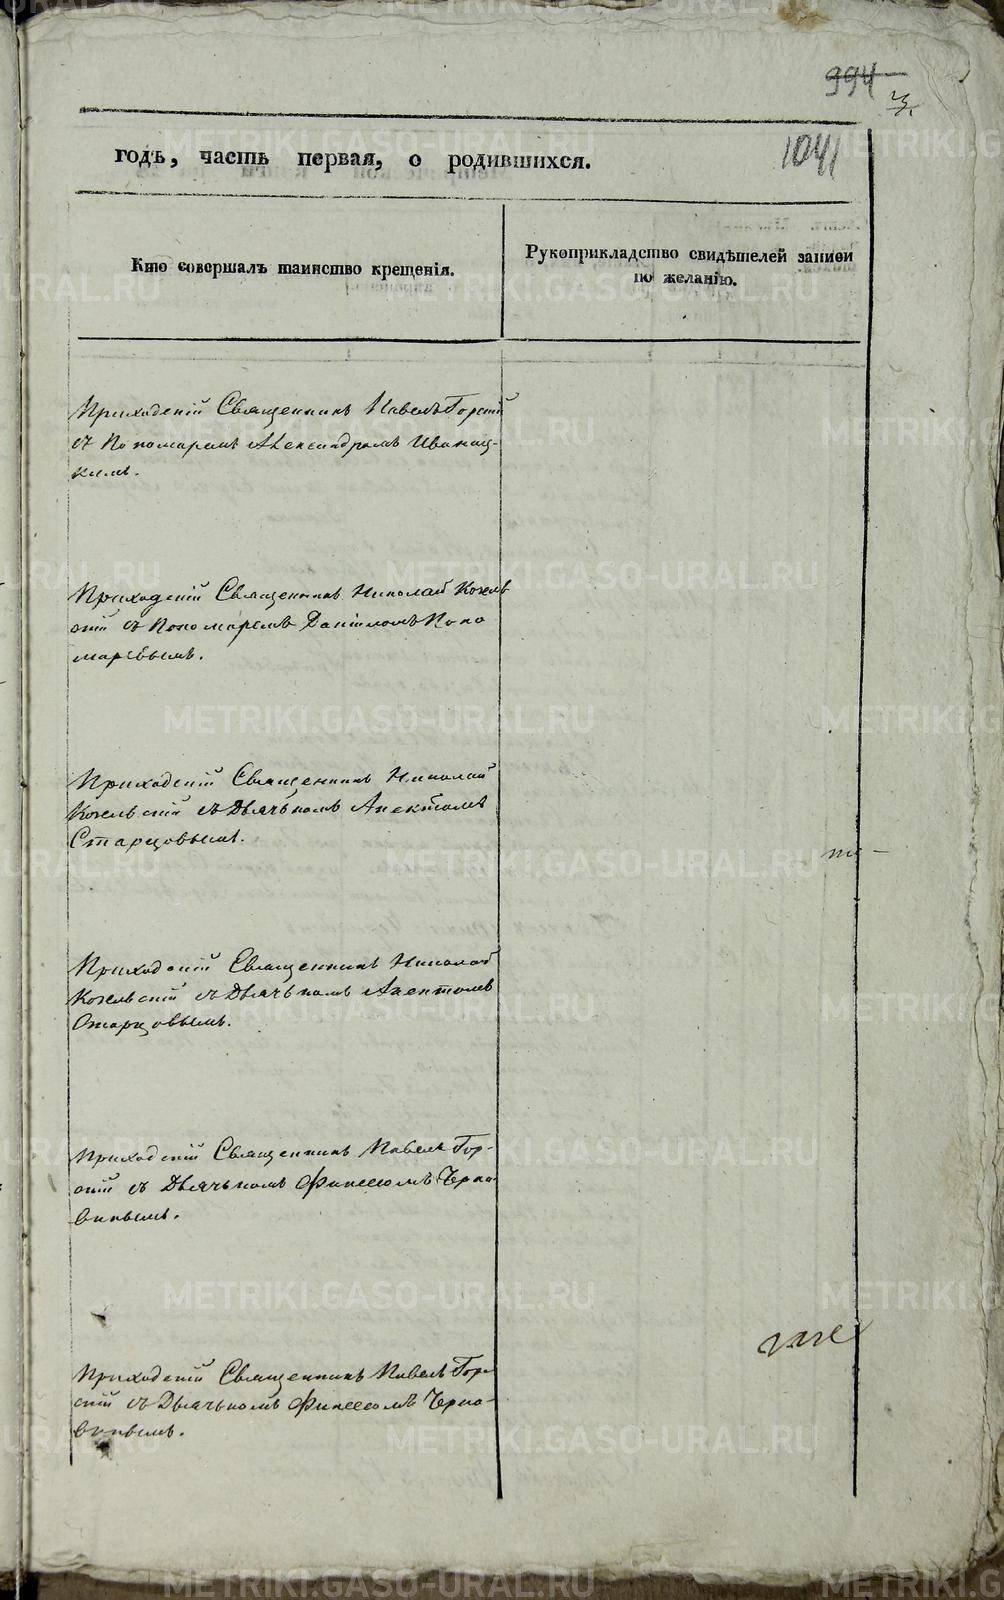 994
1041
годъ, часть первая, о родившихся.
Кто совершалъ таинство крещенія.
Рукоприкладство свидѣтелей записи
по желанію.
Приходскій Священникъ Павелъ Горскій
съ Пономаремъ Александромъ Иваниц-
кимъ.
Приходскій Священникъ Николай Кожев
скій съ Пономаремъ Даніиломъ Поно
маревымъ.
Приходскій Священникъ Николай
Кожевскій съ Дьячькомъ
Старцовымъ.
Приходскій Священникъ Николай
Кожевскій съ Дьячькомъ
Старцовымъ.
Приходскій Священникъ Павелъ Гор-
скій съ Дьячькомъ Финеесомъ Черно-
виковымъ.
Приходскій Священникъ Павелъ Гор
скій съ Дьячькомъ Финеесомъ Черно-
виковымъ.
METRIKI.GASO-URAL.RU